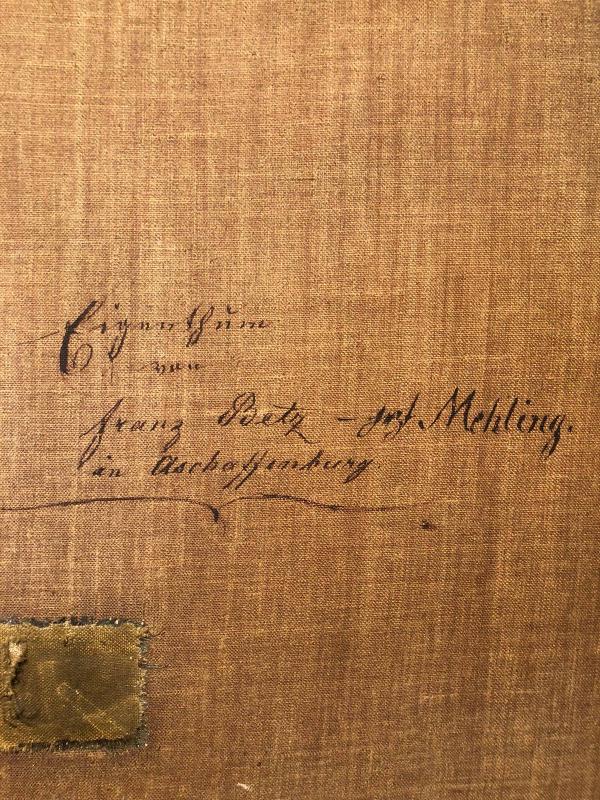 Eigenthum
von
Franz Betz – Jos. Mehling.
in Aschaffenburg